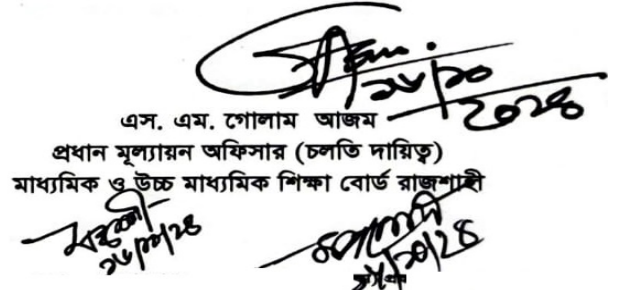 ২৮/১০
২০২৪
এস. এম. গোলাম আজম
প্রধান মূল্যায়ন অফিসার (চলতি দায়িত্ব)
মাধ্যমিক ও উচ্চ মাধ্যমিক শিক্ষা বোর্ড রাজশাহী
২৮/১০/২৪
২৮/১০/২৪